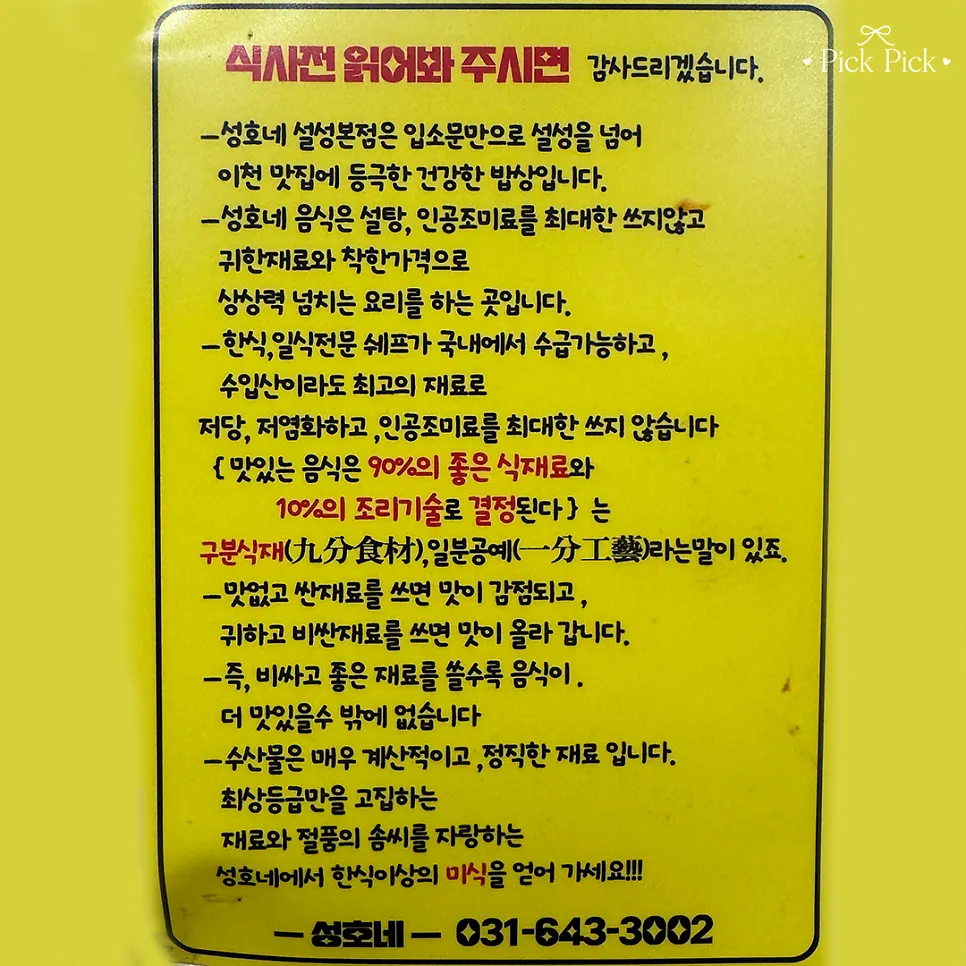 식사전 읽어봐 주시면 감사드리겠습니다.
Pick Pick
–성호네 설성본점은 입소문만으로 설성을 넘어
이천 맛집에 등극한 건강한 밥상입니다.
–성호네 음식은 설탕, 인공조미료를 최대한 쓰지않고
귀한재료와 착한가격으로
상상력 넘치는 요리를 하는 곳입니다.
–한식,일식전문 쉐프가 국내에서 수급가능하고,
수입산이라도 최고의 재료로
저당, 저염화하고,인공조미료를 최대한 쓰지 않습니다
{ 맛있는 음식은 90%의 좋은 식재료와
10%의 조리기술로 결정된다 } 는
구분식재(九分食材),일분공예(一分工藝)라는말이 있죠.
–맛없고 싼재료를 쓰면 맛이 감점되고,
귀하고 비싼재료를 쓰면 맛이 올라 갑니다.
–즉, 비싸고 좋은 재료를 쓸수록 음식이.
더 맛있을수 밖에 없습니다
–수산물은 매우 계산적이고,정직한 재료 입니다.
최상등급만을 고집하는
재료와 절품의 솜씨를 자랑하는
성호네에서 한식이상의 미식을 얻어 가세요!!!
– 성호네 – 031-643-3002